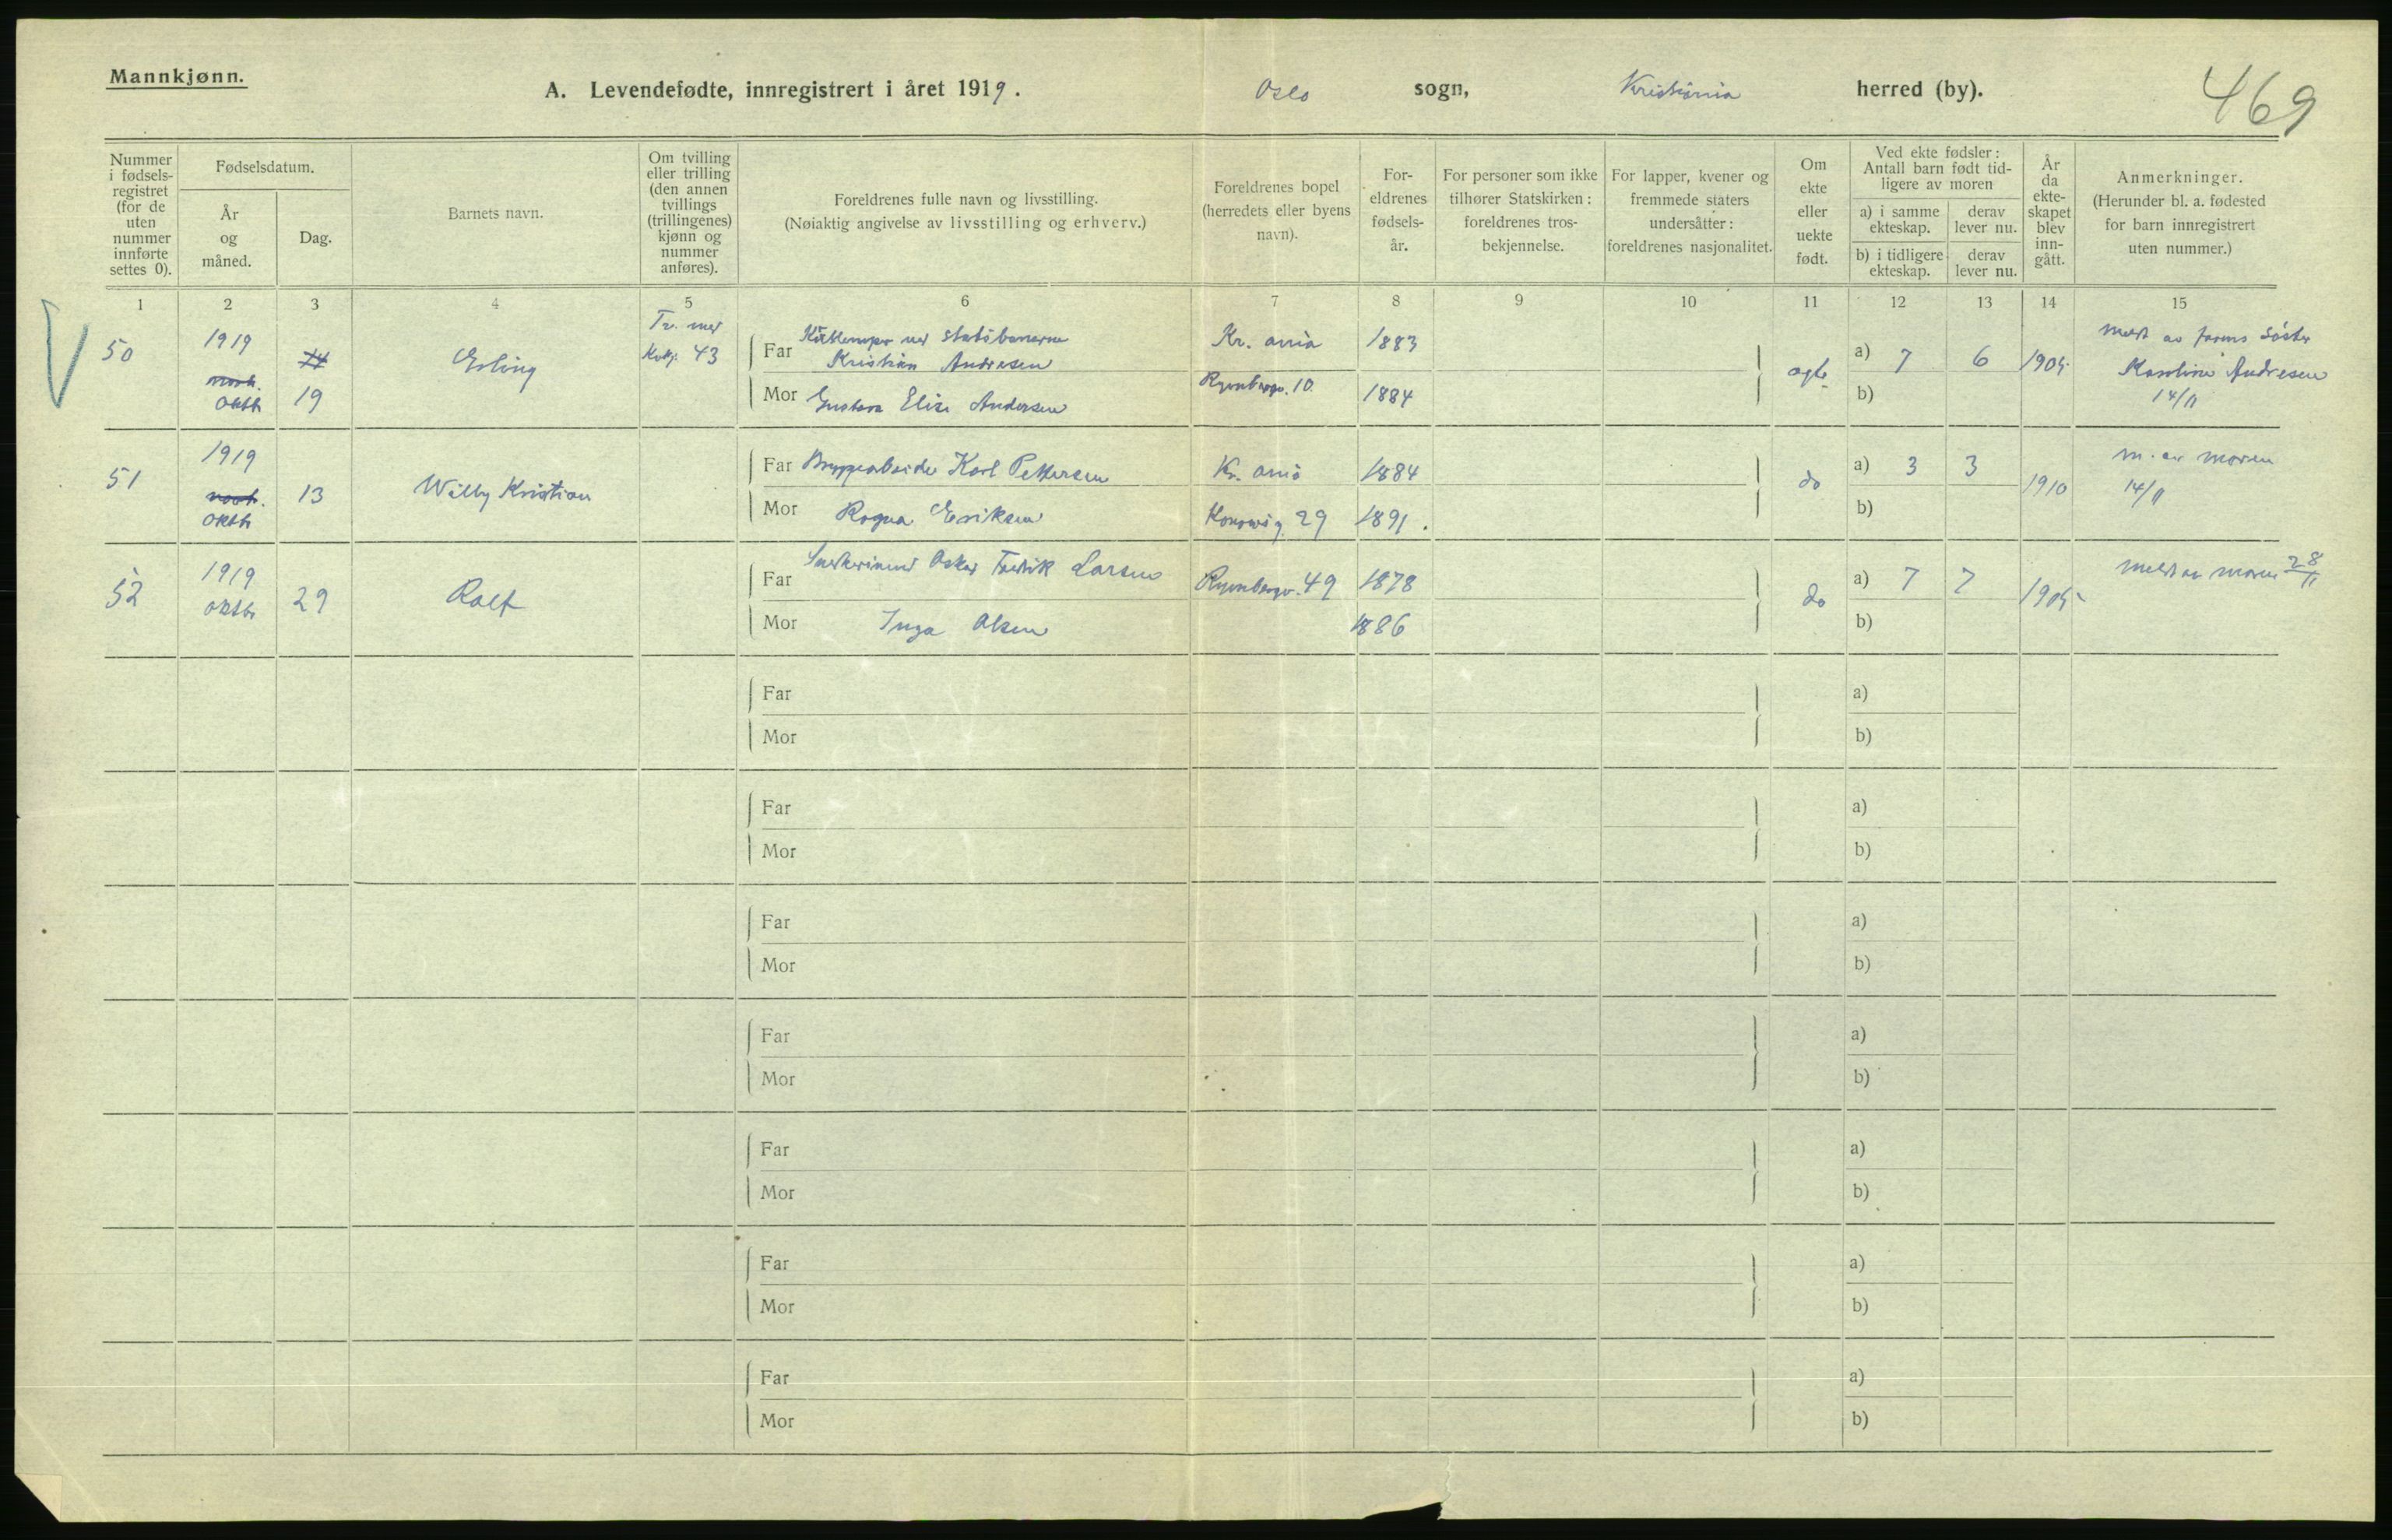 Mannkjønn.
A. Levendefødte, innregistrert i året 1919. Oslo sogn, Kristiania herred (by).
469
Nummer i fødselsregistret (for de uten nummer innførte settes 0).
Fødselsdatum.
År og måned.
Dag.
Barnets navn.
Om tvilling eller trilling (den annen tvillings (trillingenes) kjønn og nummer anføres).
Foreldrenes fulle navn og livsstilling.
(Nøiaktig angivelse av livsstilling og erhverv.)
Foreldrenes bopel (herredets eller byens navn).
Foreldrenes fødselsår.
For personer som ikke tilhører Statskirken: foreldrenes trosbekjennelse.
For lapper, kvener og fremmede staters undersåtter: foreldrenes nasjonalitet.
Om ekte eller uekte født.
Ved ekte fødsler: Antall barn født tidligere av moren
a) i samme ekteskap. derav lever nu.
b) i tidligere ekteskap. derav lever nu.
År da ekteskapet blev inngått.
Anmerkninger.
(Herunder bl. a. fødested for barn innregistrert uten nummer.)
1 2 3 4 5 6 7 8 9 10 11 12 13 14 15
50 1919 oktb 19 Erling
Tv. med Kvkj. 43
Far ved statsbanerne Kristian Andresen Kr.ania 1883
Mor Gustava Elise Andersen 10 1884
a) 7 6
b)
meldt av farens søster Karoline Andresen 14/11
51 1919 oktb 13 Willy Kristian
Far Bryggearbeider Karl Pettersen Kr. ania 1884
Mor Ragna Eriksen 29 1891.
do
a) 3 3
b)
1910
m. av moren 14/11
52 1919 oktbr 29 Rolf
Far Oskar Fredrik Larsen 49 1878
Mor Inga Olsen 1886
do
a) 7 7
b)
meldt av moren 28/11
Far a)
Mor b)
Far a)
Mor b)
Far a)
Mor b)
Far a)
Mor b)
Far a)
Mor b)
Far a)
Mor b)
Far a)
Mor b)